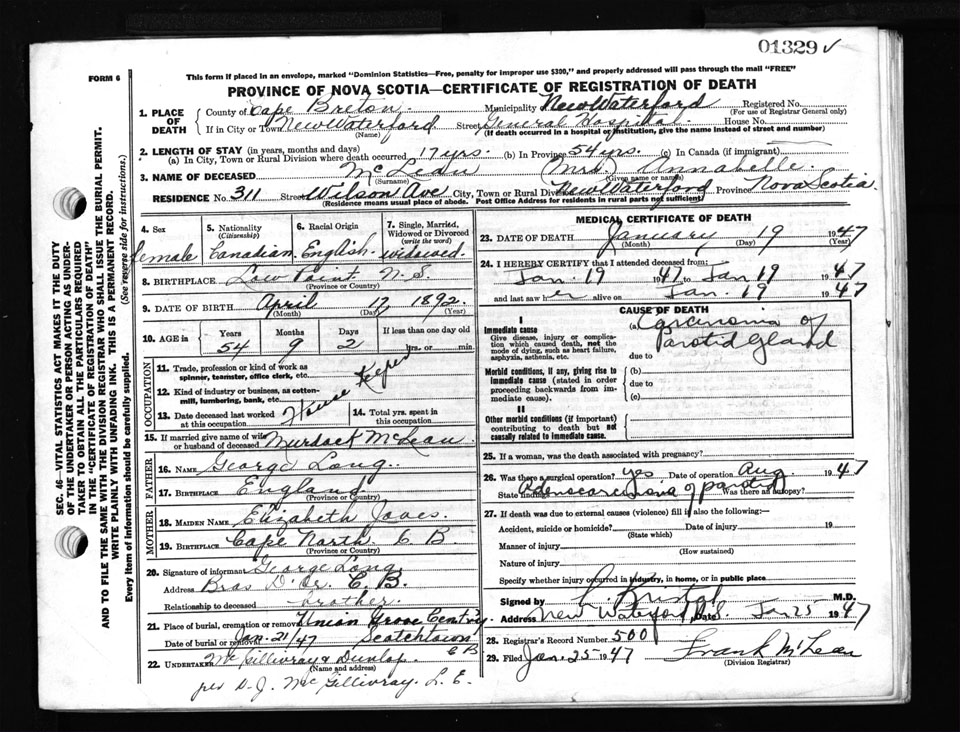 01329 ✓
FORM 6
This form if placed in an envelope, marked "Dominion Statistics—Free, penalty for improper use $300," and properly addressed will pass through the mail "FREE"
PROVINCE OF NOVA SCOTIA—CERTIFICATE OF REGISTRATION OF DEATH
SEC. 46—VITAL STATISTICS ACT MAKES IT THE DUTY
OF THE UNDERTAKER OR PERSON ACTING AS UNDER-
TAKER TO OBTAIN ALL THE PARTICULARS REQUIRED
IN THE "CERTIFICATE OF REGISTRATION OF DEATH"
AND TO FILE THE SAME WITH THE DIVISION REGISTRAR WHO SHALL ISSUE THE BURIAL PERMIT.
WRITE PLAINLY WITH UNFADING INK. THIS IS A PERMANENT RECORD.
Every item of Information should be carefully supplied. (See reverse side for instructions.)
1. PLACE OF DEATH County of Cape Breton. Municipality New Waterford Registered No.
(For use of Registrar General only)
If in City or Town New Waterford Street General Hospital. House No.
(Name) (If death occurred in a hospital or institution, give the name instead of street and number)
2. LENGTH OF STAY (in years, months and days)
(a) In City, Town or Rural Division where death occurred 17 yrs. (b) In Province 54 yrs. (c) In Canada (if immigrant)
3. NAME OF DECEASED McLean (Mrs) Annabelle.
(Surname) (Given name or names)
RESIDENCE No. 311 Street Wilson Ave City, Town or Rural Division New Waterford Province Nova Scotia
(Residence means usual place of abode. Post Office Address for residents in rural parts not sufficient)
4. Sex 5. Nationality (Citizenship) 6. Racial Origin 7. Single, Married, Widowed or Divorced (write the word)
female Canadian English. widowed.
8. BIRTHPLACE Low Point N.S.
(Province or Country)
9. DATE OF BIRTH April 17 1892.
(Month) (Day) (Year)
10. AGE in Years Months Days If less than one day old
54 9 2 hrs. or min.
OCCUPATION
11. Trade, profession or kind of work as spinner, teamster, office clerk, etc.
12. Kind of industry or business, as cotton-mill, lumbering, bank, etc.
House Keeper
13. Date deceased last worked at this occupation 14. Total yrs. spent in this occupation
15. If married give name of wife or husband of deceased Murdock McLean.
FATHER
16. NAME George Long.
17. BIRTHPLACE England.
(Province or Country)
MOTHER
18. MAIDEN NAME Elizabeth
19. BIRTHPLACE Cape North C B
(Province or Country)
20. Signature of informant George Long
Address Bras D'Or. C.B.
Relationship to deceased brother.
21. Place of burial, cremation or removal Union Grove
Date of burial or removal Jan. 21/47 Scotchtown C B
22. UNDERTAKER McGillivray & Dunlop.
(Name and address)
per D. J. McGillivray. L. E.
MEDICAL CERTIFICATE OF DEATH
23. DATE OF DEATH January 19 1947
(Month) (Day) (Year)
24. I HEREBY CERTIFY that I attended deceased from:
Jan. 19 1947 to Jan 19 1947
and last saw her alive on Jan. 19 1947
CAUSE OF DEATH
I
Immediate cause
Give disease, injury or complica-
tion which caused death, not the
mode of dying, such as heart failure,
asphyxia, asthenia, etc.
(a) Carcinoma of Parotid Gland
due to
Morbid conditions, if any, giving rise to
immediate cause (stated in order
proceeding backwards from im-
mediate cause).
(b)
due to
(c)
II
Other morbid conditions (if important)
contributing to death but not
causally related to immediate cause.
25. If a woman, was the death associated with pregnancy?
26. Was there a surgical operation? yes Date of operation Aug. 1947
State findings Adenocarcinoma of parotid Was there an autopsy?
27. If death was due to external causes (violence) fill in also the following:—
Accident, suicide or homicide? Date of injury 19
(State which)
Manner of injury
(How sustained)
Nature of injury
Specify whether injury occurred in industry, in home, or in public place
Signed by M.D.
Address New Waterford N.S. Date Jan 25 1947
28. Registrar's Record Number 500
29. Filed Jan. 25 1947 Frank McLean
(Division Registrar)